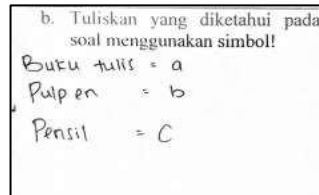 b. Tuliskan yang diketahui pada
soal menggunakan simbol!
Buku tulis = a
Pulpen = b
Pensil = C